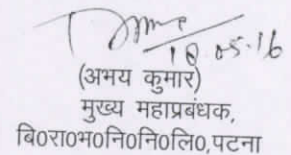 18.05.16
(अभय कुमार)
मुख्य महाप्रबंधक,
बि०रा०भ०नि०नि०लि०,पटना